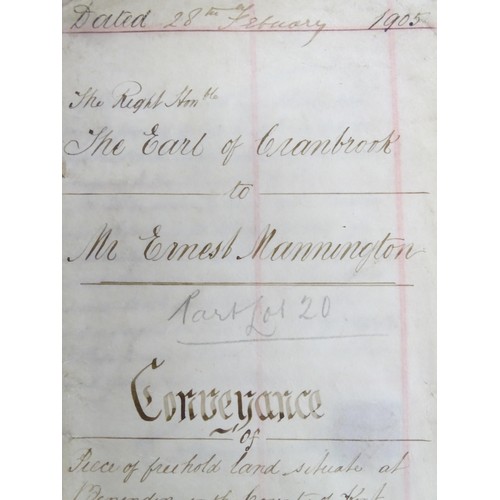 Dated 28th of Febuary 1905
The Right Honble
The Earl of Cranbrook
to
Mr Ernest Mannington
Part Lot 20
Conveyance
of
Piece of freehold land situate at
in the County of Kent